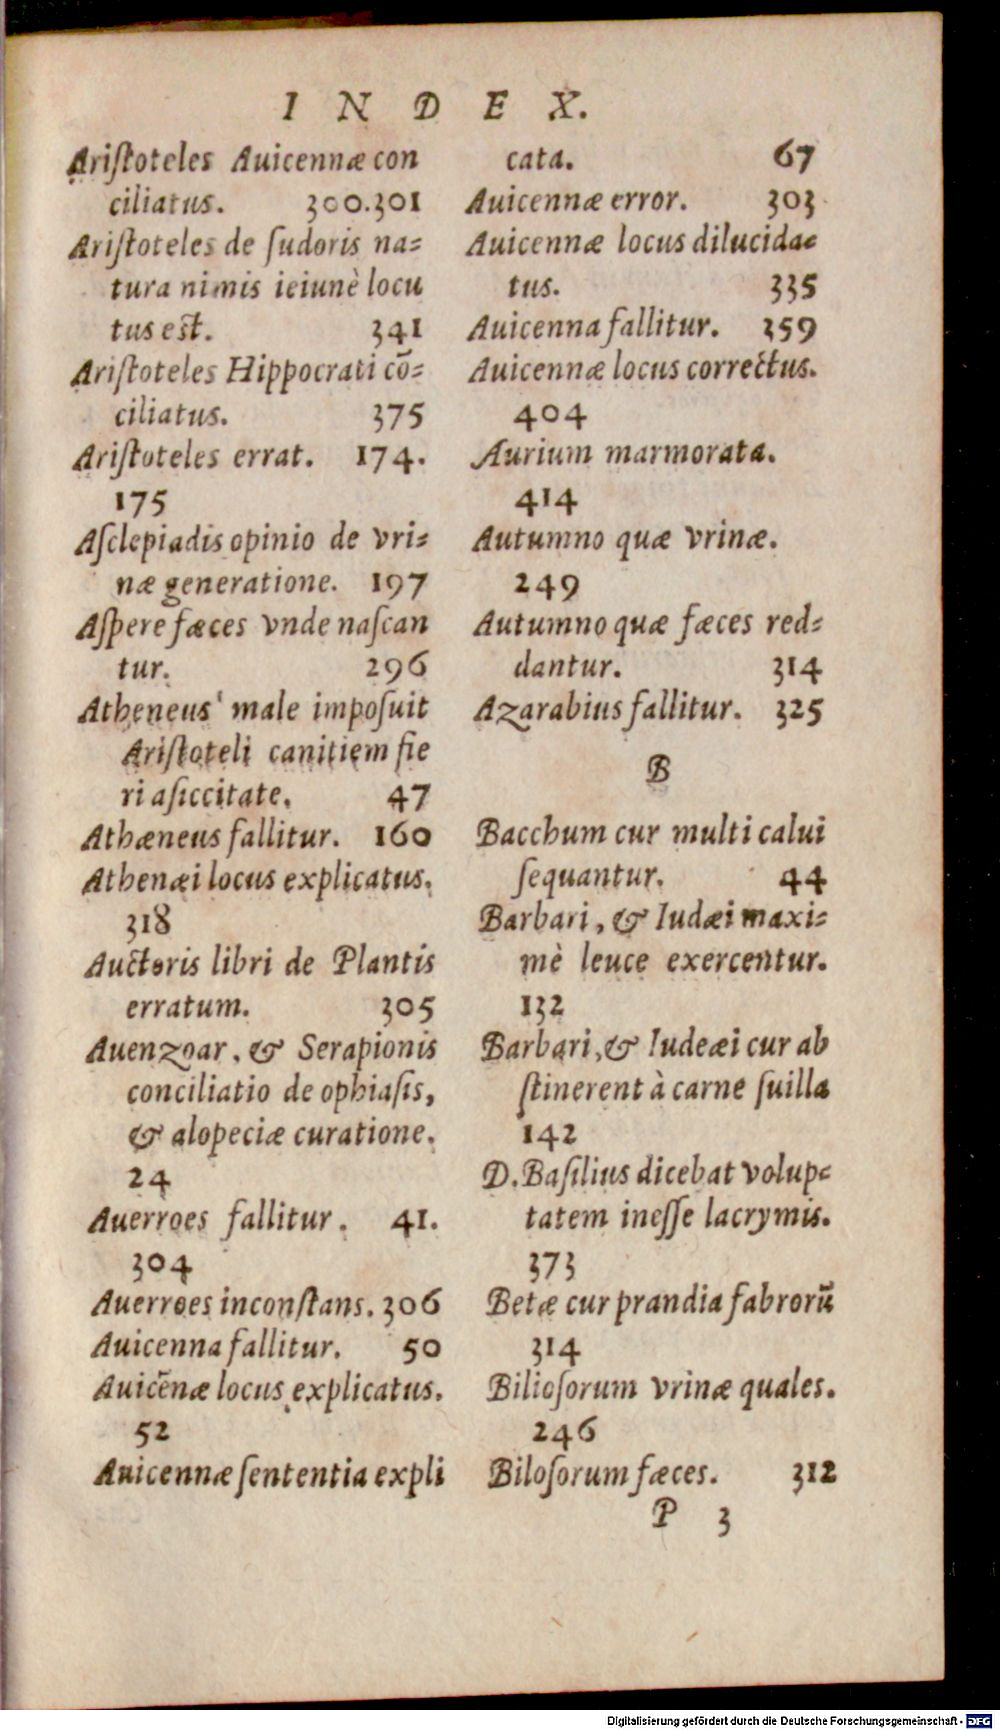 INDEX.
Ariſtoteles Auicennæ con
ciliatus. 300.301
Ariſtoteles de ſudoris na=
tura nimis ieiunè locu
tus eſt. 341
Ariſtoteles Hippocrati cō=
ciliatus. 375
Ariſtoteles errat. 174.
175
Aſclepiadis opinio de vri=
næ generatione. 197
Aſpere fæces vnde naſcan
tur. 296
Atheneus male impoſuit
Ariſtoteli canitiem fie
ri aſiccitate. 47
Athæneus fallitur. 160
Athenæi locus explicatus.
318
Auctoris libri de Plantis
erratum. 305
Auenzoar, & Serapionis
conciliatio de ophiaſis,
& alopeciæ curatione.
24
Auerroes fallitur. 41.
304
Auerroes inconſtans. 306
Auicenna fallitur. 50
Auicēnæ locus explicatus.
52
Auicennæ ſententia expli
cata. 67
Auicennæ error. 303
Auicennæ locus dilucida=
tus. 335
Auicenna fallitur. 359
Auicennæ locus correctus.
404
Aurium marmorata.
414
Autumno quæ vrinæ.
249
Autumno quæ fæces red=
dantur. 314
Azarabius fallitur. 325
B
Bacchum cur multi calui
ſequantur. 44
Barbari, & Iudæi maxi=
mè leuce exercentur.
132
Barbari, & Iudeæi cur ab
ſtinerent à carne ſuilla
142
D. Baſilius dicebat volup=
tatem ineſſe lacrymis.
373
Betæ cur prandia fabrorū
314
Bilioſorum vrinæ quales.
246
Biloſorum fæces. 312
P 3
Digitalisierung gefördert durch die Deutsche Forschungsgemeinschaft - DFG